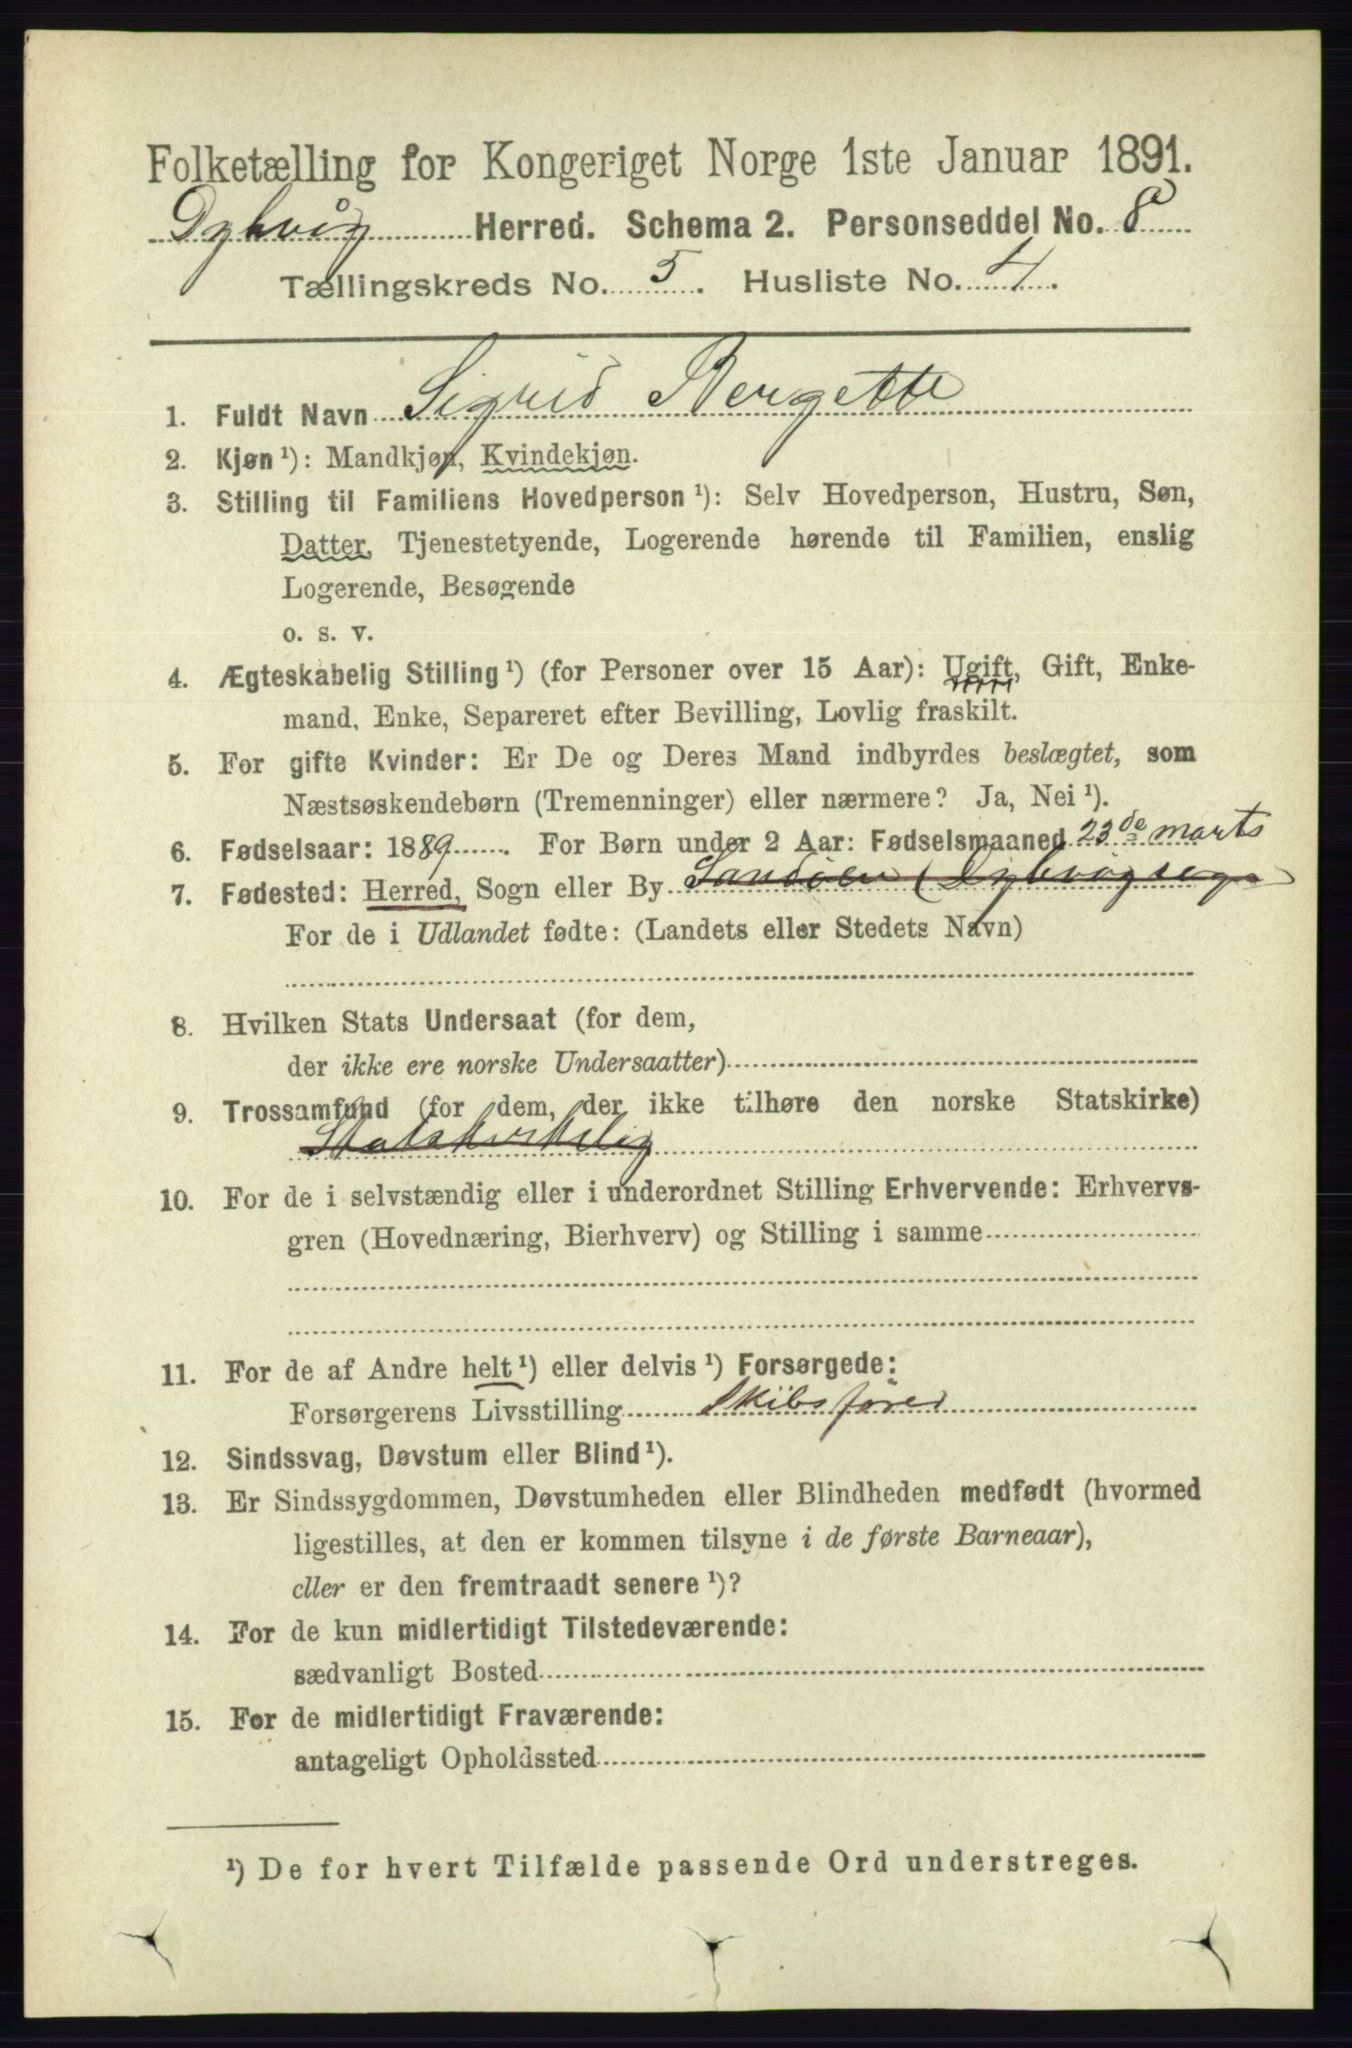 Folketælling for Kongeriget Norge 1ste Januar 1891.
Dybvåg Herred. Schema 2. Personseddel No. 8
Tællingskreds No. 5. Husliste No. 4.
1. Fuldt Navn Sigrid Bergette
2. Kjøn¹): Mandkjøn, Kvindekjøn.
3. Stilling til Familiens Hovedperson¹): Selv Hovedperson, Hustru, Søn,
Datter, Tjenestetyende, Logerende hørende til Familien, enslig
Logerende, Besøgende
o. s. v.
4. Ægteskabelig Stilling¹) (for Personer over 15 Aar): Ugift, Gift, Enke-
mand, Enke, Separeret efter Bevilling, Lovlig fraskilt.
5. For gifte Kvinder: Er De og Deres Mand indbyrdes beslægtet, som
Næstsøskendebørn (Tremenninger) eller nærmere? Ja, Nei¹).
6. Fødselsaar: 1889. For Børn under 2 Aar: Fødselsmaaned 23de marts
7. Fødested: Herred, Sogn eller By Sandøen (Dybvåg sogn
For de i Udlandet fødte: (Landets eller Stedets Navn)
8. Hvilken Stats Undersaat (for dem,
der ikke ere norske Undersaatter)
9. Trossamfund (for dem, der ikke tilhøre den norske Statskirke)
Statskirkelig
10. For de i selvstændig eller i underordnet Stilling Erhvervende: Erhvervs-
gren (Hovednæring, Bierhverv) og Stilling i samme
11. For de af Andre helt¹) eller delvis¹) Forsørgede:
Forsørgerens Livsstilling Skibsfører
12. Sindssvag, Døvstum eller Blind¹).
13. Er Sindssygdommen, Døvstumheden eller Blindheden medfødt (hvormed
ligestilles, at den er kommen tilsyne i de første Barneaar),
eller er den fremtraadt senere¹)?
14. For de kun midlertidigt Tilstedeværende:
sædvanligt Bosted
15. For de midlertidigt Fraværende:
antageligt Opholdssted
¹) De for hvert Tilfælde passende Ord understreges.